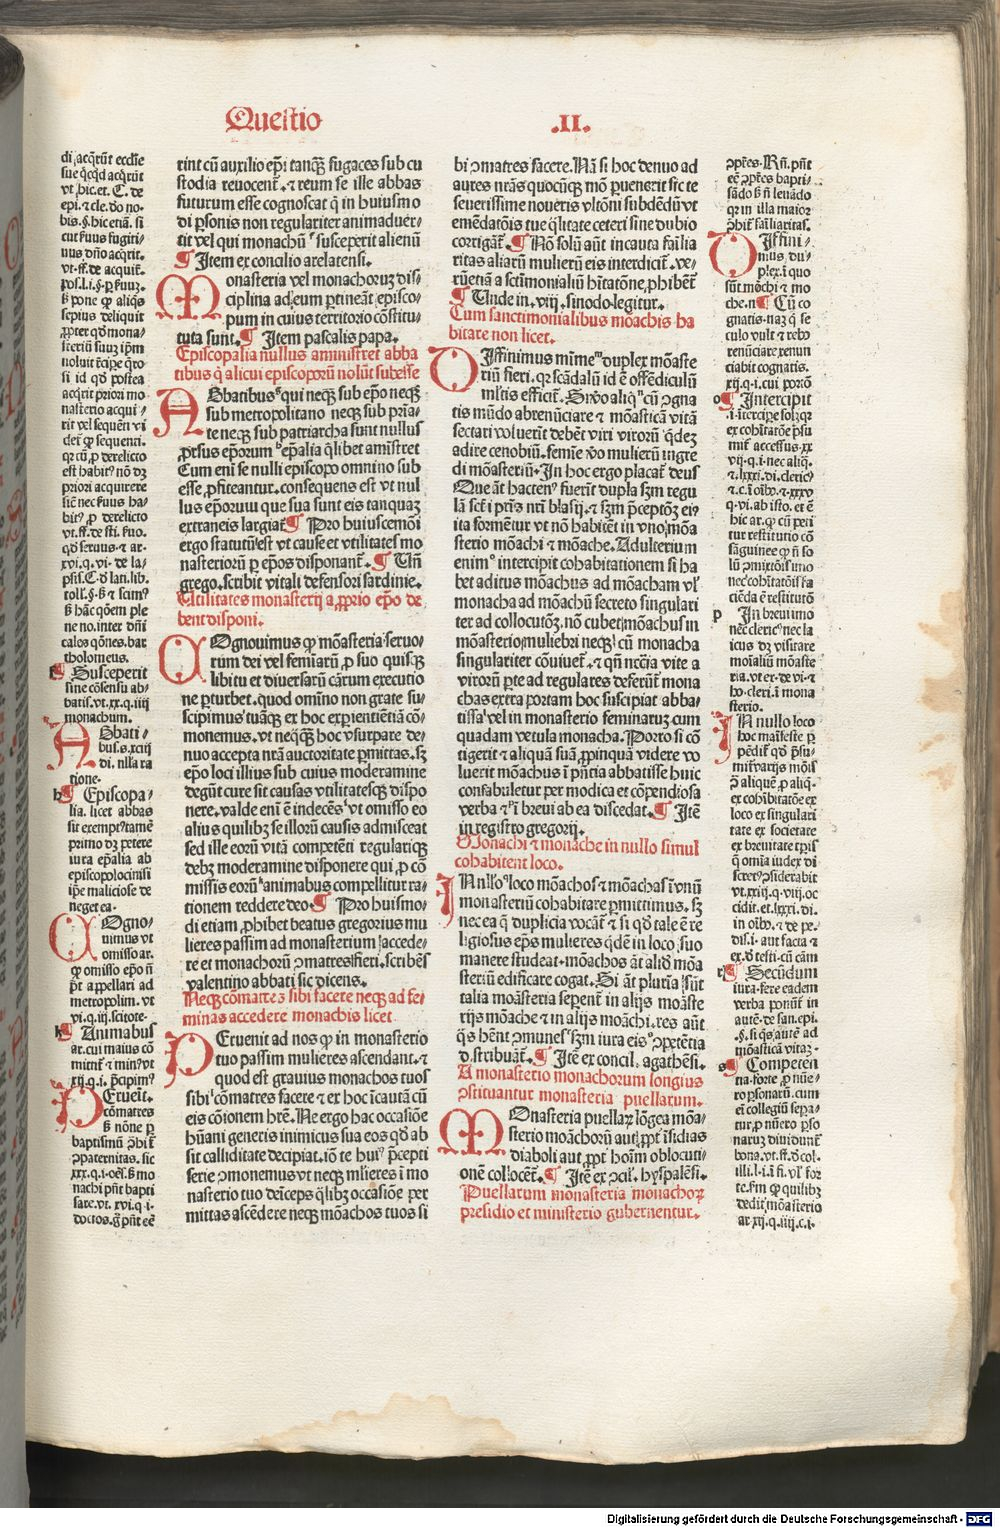 Questio .II.
di acq̄rūt eccl̄ie
sue q̄cq̄d acq̄rūt
vt .hic.et. C. de
epi.⁊ cle.do no-
bis.§.hic enā. si
cut ẜuus fugiri/
uus dn̄o acq̄rit.
vt.ff.de acquir̄.
sepius deliquit
steriū suuꝫ ip̄m
si id qd̄ postea
acq̄rit priori mo
nasterio acqui/
rit vel sequēti vi
det̄ ꝙ sequenti.
qꝛ cū ꝓ derelicto
est habit⁹ nō dꝫ
priori acquirere
bit⁹ ꝓ derelicto
xvi.q.vi. de la-
ne no.inter dn̄i
calos qōnes.bar
tholomeus.
Susceperit
sine cōsensu ab/
batis.vt.xx.q.iiij
monachum.
ABbati/
bus.s.xciij
di. nlla ra
tione.
Episcopa/
lia. licet abbas
sit exempt⁹ tamē
primo dꝫ petere
iura ep̄alia ab
episcopo loci nisi
ip̄e maliciose de
neget ea.
COgno/
uimus vt
omisso ar.
ꝙ omisso ep̄o n̄
p̄t appellari ad
metropolim. vt
vi.q.iij.scitote.
Animabus
ar.cui maius cō
mittit̄ ⁊ min⁹ vt
xij.q.i. p̄cipim⁹
PEruēit.
cōmatres
baptismū ꝓhib̄
ꝯpaternitas. sic
nachi pn̄t bapti
sare.vt.xvi.q.i.
doctos.q̄ pn̄t eē
rint cū auxilio ep̄i tanqꝫ fugaces sub cu
stodia reuocent̄.⁊ reum se ille abbas
futurum esse cognoscat q̄ in huiusmo
di ꝑsonis non regulariter animaduer-
tit vel qui monachū susceperit alienū
¶ Item ex concilio arelatensi.
MOnasteria vel monachoruꝫ dis/
ciplina ad eum ꝑtineāt episco-
pum in cuius territorio cōstitu-
tuta sunt. ¶ Item pascalis papa.
Episcopalia nullus aministret abba
tibus q̄ alicui episcoporū nolūt subesse
ABbatibus qui neqꝫ sub ep̄o neqꝫ
sub metropolitano neqꝫ sub pria-
te neqꝫ sub patriarcha sunt nullus
ꝓrsus ep̄orum ep̄alia q̄libet amīstret
Cum enī se nulli episcopo omnino sub
esse ꝓfiteantur.consequens est vt nul
lus ep̄oruꝫ que sua sunt eis tanquaꝫ
extraneis largiat̄ ¶ Pro huiuscemōi
ergo statutū est vt cause et vtilitates mo
nasteriorū ꝑ ep̄os disponant̄. ¶ Un̄
grego.scribit vitali defensori sardinie.
Utilitates monasterij a ꝓprio ep̄o de
bent disponi.
COgnouimus ꝙ mōasteria seruo-
rum dei vel femiarū ꝓ suo quisqꝫ
libitu et diuersarū cārum executio
ne ꝑturbet.quod omīno non grate su-
scipimus tuāqꝫ ex hoc exꝑientietiā cō-
monemus.vt neq̄qꝫ hoc vsurpare de-
nuo accepta nrā auctoritate ꝑmittas.sꝫ
ep̄o loci illius sub cuius moderamine
degūt cure sit causas vtilitatesqꝫ dispo
nere.valde enī ē indecēs vt omisso eo
alius quilibꝫ se illorū causis admisceat
sed ille eorū vitā competēti regulariqꝫ
debꝫ moderamine disponere qui ꝓ cō
missis eorū animabus compellitur ra-
tionem reddere deo. ¶ Pro huismo-
di etiam ꝓhibet beatus gregorius mu
lieres passim ad monasterium accede-
re et monachorū ꝯmatres fieri.scribēs
valentino abbati sic dicens.
Neqꝫ cōmatres sibi facere neqꝫ ad fe-
minas accedere monachis licet
PEruenit ad nos ꝙ in monasterio
tuo passim mulieres ascendant.⁊
quod est grauius monachos tuos
sibi cōmatres facere ⁊ ex hoc īcautā cū
eis cōionem hr̄e.Ne ergo hac occasiōe
hūani generis inimicus sua eos qd̄ ab
sit calliditate decipiat.iō te hui⁹ p̄cepti
serie ꝯmonemus vt neqꝫ mlieres ī mo
nasterio tuo deīceps q̄libꝫ occasiōe per
mittas ascēdere neqꝫ mōachos tuos si
bi ꝯmatres facere.Nā si hoc denuo ad
aures nrās quocūqꝫ mō ꝑuenerit sic te
seuerissime noueris vltōni subdēdū vt
emēdatōis tue q̄litate ceteri sine dubio
corrigāt̄. ¶ Nō solū aūt incauta fa̅ilia
ritas aliarū mulierū eis interdicit̄.ve-
rūetiā a sc̄timonialiū hītatōne ꝓhibēt̄
¶ Unde in.viij.sinodo legitur.
Cum sanctimonialibus mōachis ha
bitare non licet.
DIffinimus mīme duplex mōaste
riū fieri.qꝛ scādalū id ē offēdiculū
mltis efficit̄. Si v̄o aliq̄ cū ꝯgna
tis mūdo abrenūciare ⁊ mōasticā vitā
sectari voluerīt debēt viri virorū q̄deꝫ
adire cenobiū.femīe v̄o mulierū ingre
di mōasteriū.In hoc ergo placat̄ deus
Que āt hacten⁹ fuerūt dupla sꝫm regu
lā sct̄i pr̄is nr̄i blasij.⁊ sꝫm p̄ceptōꝫ ei⁹
ita formētur vt nō habitēt in vno mōa
sterio mōachi ⁊ mōache.Adulterium
enim intercipit cohabitationem si ha
bet aditus mōachus ad mōacham vl̄
monacha ad mōachū secreto singulari
ter ad collocutōꝫ.nō cubet mōachus in
mōasterio muliebri neqꝫ cū monacha
singulariter cōuiuet̄.⁊ qn̄ nccīa vite a
virorū ꝑte ad regulares deferūt̄ mona
chas extra portam hoc suscipiat abba-
tissa vel in monasterio feminaꝝ cum
quadam vetula monacha.Porro si cō
tigerit ⁊ aliquā suā ꝓpinquā videre vo
luerit mōachus ī pn̄tia abbatisse huic
confabuletur per modica et cōpendiosa
verba ⁊ ī breui ab ea discedat. ¶ Itē
in registro gregorij.
Monachi ⁊ monache in nullo simul
cohabitent loco.
IN nullo loco mōachos ⁊ mōachas ī vnū
monasteriū cohabitare ꝑmittimus.sꝫ
nec ea q̄ duplicia vocāt̄ ⁊ si qd̄ tale ē re
ligiosus ep̄s mulieres q̄dē in loco suo
manere studeat.mōachos āt aliō mōa
steriū edificare cogat. Si āt pluria sūt
talia moāsteria seꝑent̄ in alijs moāste
rijs mōache ⁊ in alijs moāchi.res aūt
q̄s hēnt ꝯmunes sꝫm iura eis ꝯpetētia
distribuāt̄. ¶ Itē ex concil.agathēsi.
A monasterio monachorum longius
ꝯstituantur monasteria puellarum.
MOnasteria puellaꝝ lōgea mōa-
sterio moāchorū aut ꝓpt̄ īsidias
diaboli aut ꝓpt̄ hoīm oblocuti-
onē collocēt̄. ¶ Itē ex ꝯcil. hyspalēsi.
Puellarum monasteria monachoꝝ
presidio et ministerio gubernentur.
ꝯpr̄es.Rn̄.pn̄t
eē ꝯpr̄es bapti-
sādo ẜꝫ n̄ leuādo
qꝛ in illa maior
ꝓhib̄ fa̅iliaritas.
DIffini/
mus. du/
plex.i.quo
sūt mōchi ⁊ mo
che.n ¶ Cū co
gnatis.naꝫ q̄ se
culo vult ⁊ rebꝰ
renūciare renun
ciabit cognatis.
xij.q.i.cui porrō
¶ Intercipit
.i.īterciꝑe solꝫ qꝛ
ex cohītatōe p̄su
mit̄ accessus.xx
vij.q.i.nec aliq̄.
⁊.lxxxi.di.cleric⁹
⁊.c.ī oīb⁹.⁊.xxxv
q.vi.ab isto.et ē
hic ar.ꝙ cū peti
tur restitutio cō
sāguinee ꝙ n̄ so
lū
cienda ē restitutō
In breui mo
nec cleric⁹ nec la
icus dꝫ visitare
moīaliū mōaste
ria.vt ex de vi.⁊
ho.cleri.ī mona
sterio.
IN nullo loco
hoc maīfeste ꝑ
pēdit̄ qd̄ p̄su-
mit̄ varijs mōis
ꝯ̄ aliquē ꝓ aliq̄.
ex cohītatōe ex
loco ex singulari
tate ex societate
ex breuitate tꝑis
q̄ oīa iudex di
scret⁹ ꝯsiderabit
vt.xxiij.q.viij.oc
cidit.et.lxxxi.di.
in oīb⁹.⁊ de pe.
dis.i. aut facta ⁊
ex.d̄ testi.cū cām
Secūdum
iura.fere eadem
verba ponūt̄ in
autē.de san.epi.
.§.si q̄s autē ad
mōasticā vitaꝫ.
Competen
tia.forte ꝓ nūe/
ro ꝑsonarū.cum
ei collegiū seꝑa-
tur.ꝓ nūero ꝑso
naruꝫ diuidunt̄
bona.vt.ff.d̄ col.
te.sm̄ ꝙ quilibꝫ
dedit mōasterio
ar.xij.q.iiij.c.i.
Digitalisierung gefördert durch die Deutsche Forschungsgemeinschaft - DFG